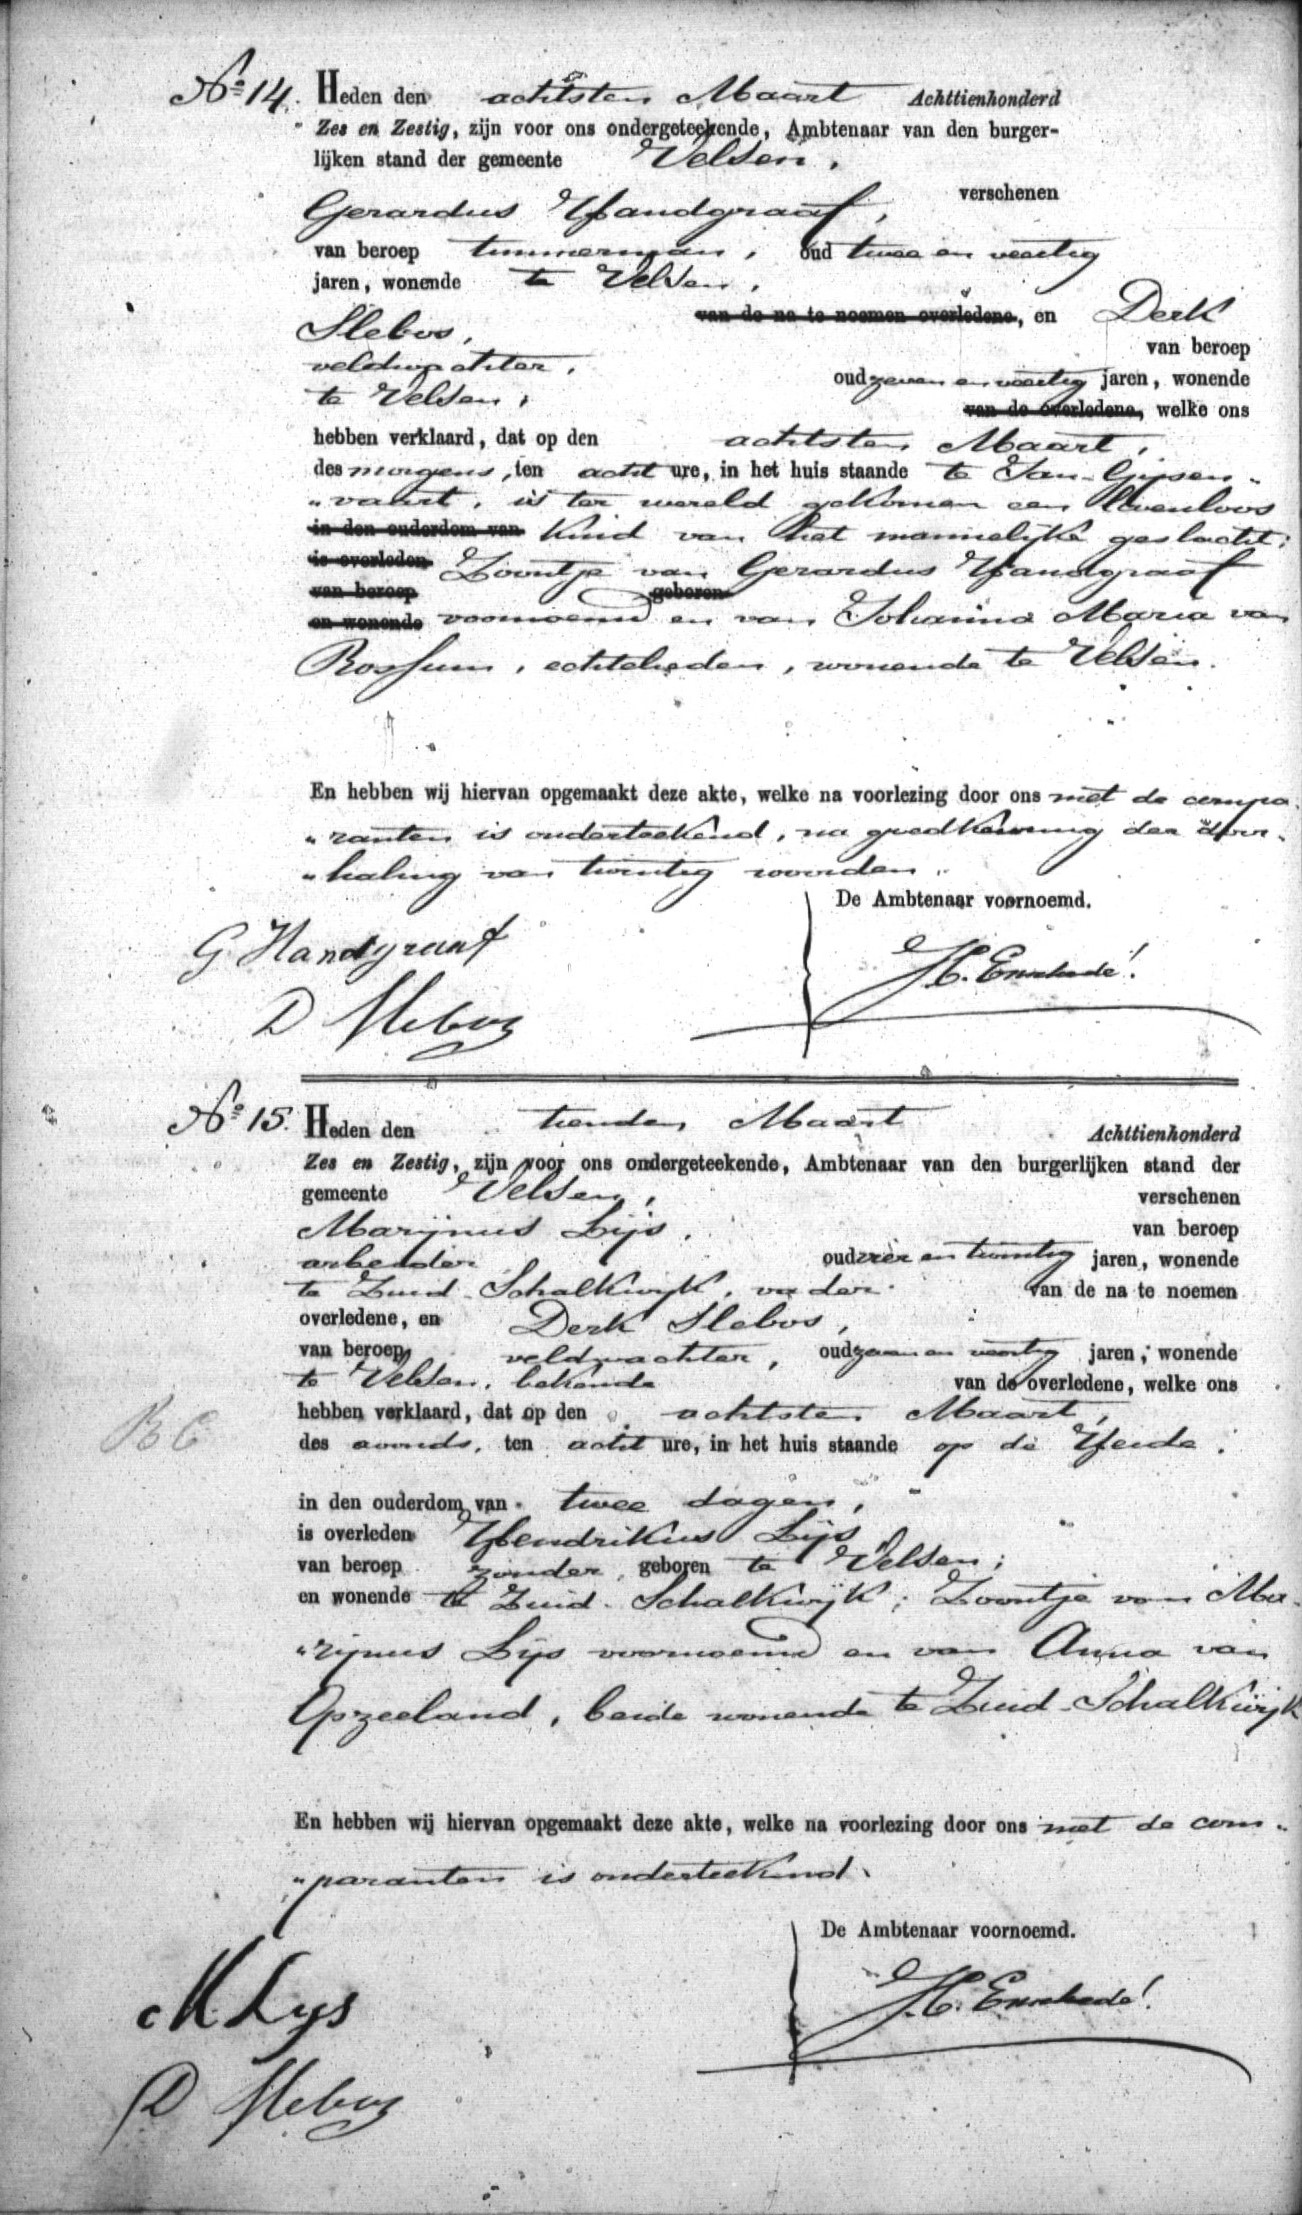 No 14. Heden den achtsten Maart Achttienhonderd
Zes en Zestig, zijn voor ons ondergeteekende, Ambtenaar van den burger-
lijken stand der gemeente Velsen,
verschenen
Gerardus Handgraaf,
van beroep timmerman, oud twee en veertig
jaren, wonende te Velsen,
van de na te noemen overledene, en Derk
Slebos, van beroep
veldwachter, oud zeven en veertig jaren, wonende
te Velsen, van de overledene, welke ons
hebben verklaard, dat op den achtsten Maart,
des morgens, ten acht ure, in het huis staande te Jan-Gijsen-
"vaart, is ter wereld gekomen een levenloos
in den ouderdom van kind van het mannelijke geslacht;
is overleden Zoontje van Gerardus Handgraaf
van beroep geboren
en wonende voornoemd en van Johanna Maria van
Rossum, echtelieden, wonende te Velsen.
En hebben wij hiervan opgemaakt deze akte, welke na voorlezing door ons met de compa-
"ranten is onderteekend, na goedkeuring der door-
"haling van twintig woorden.
De Ambtenaar voornoemd.
G Handgraaf
H. Enschedé!
D Slebos
No 15. Heden den tienden Maart Achttienhonderd
Zes en Zestig, zijn voor ons ondergeteekende, Ambtenaar van den burgerlijken stand der
gemeente Velsen, verschenen
Marijnus Lijs, van beroep
arbeider oud vier en twintig jaren, wonende
te Zuid-Schalkwijk, vader van de na te noemen
overledene, en Derk Slebos,
van beroep veldwachter, oud zeven en veertig jaren, wonende
te Velsen, bekende van de overledene, welke ons
hebben verklaard, dat op den achtsten Maart,
des avonds, ten acht ure, in het huis staande op de Heide,
in den ouderdom van twee dagen,
is overleden Hendrikus Lijs
van beroep zonder, geboren te Velsen;
en wonende te Zuid-Schalkwijk; Zoontje van Ma-
"rijnus Lijs voornoemd en van Anna van
Opzeeland, beide wonende te Zuid-Schalkwijk
En hebben wij hiervan opgemaakt deze akte, welke na voorlezing door ons met de com-
"paranten is onderteekend.
De Ambtenaar voornoemd.
M Lys
H. Enschedé!
D Slebos